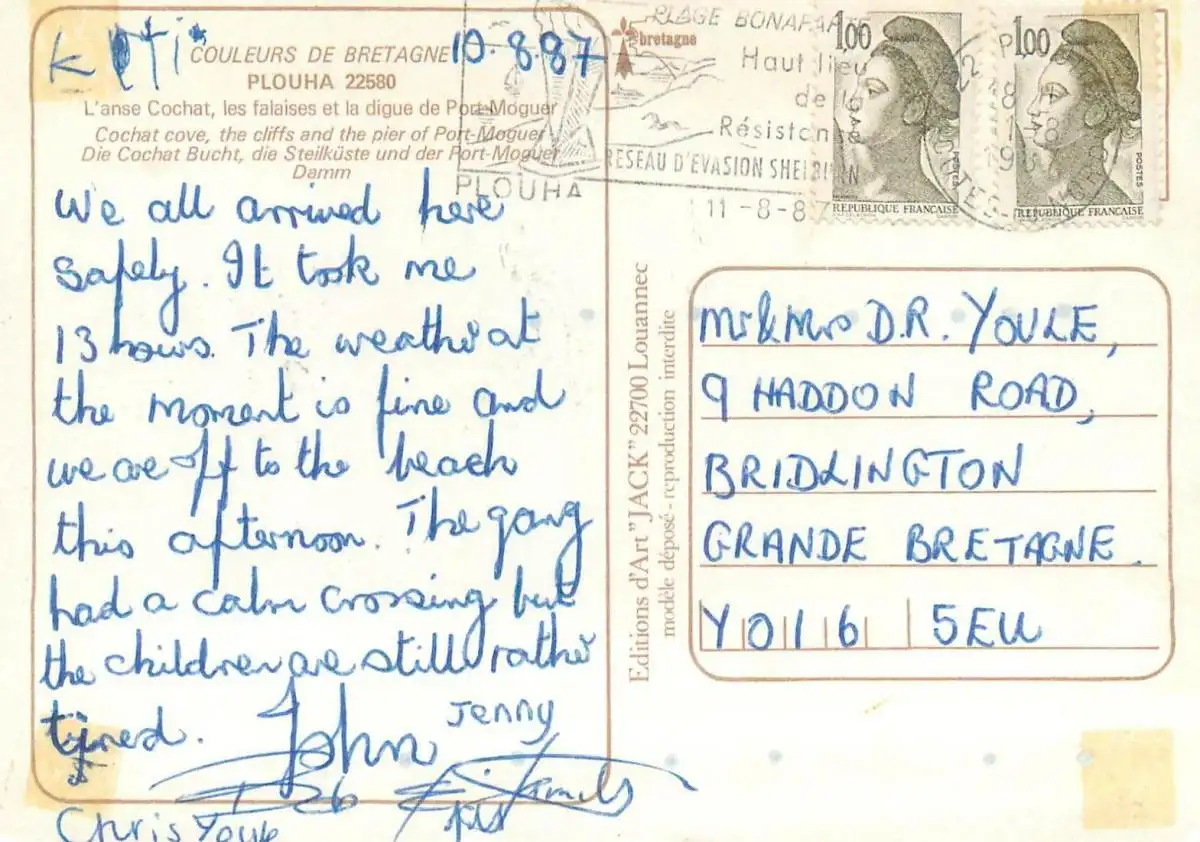 COULEURS DE BRETAGNE 10.8.87
PLOUHA 22580
L'anse Cochat, les falaises et la digue de Port-Moguer
Cochat cove, the cliffs and the pier of Port-Moguer
Die Cochat Bucht, die Steilküste und der Port-Moguer
Damm
We all arrived here
safely. It took me
13 hours. The weather at
the moment is fine and
we are off to the beach
this afternoon. The gang
had a calm crossing but
the children are still rather
tired.
John
Jenny
Deb
Chris Youle
bretagne
PLAGE BONAPARTE
Haut lieu
de la
Résistance
RESEAU D'EVASION SHELBURN
PLOUHA
11-8-87
1,00
POSTES
REPUBLIQUE FRANÇAISE
1,00
POSTES
REPUBLIQUE FRANÇAISE
Editions d'Art "JACK" 22700 Louannec
modèle déposé - reproduction interdite
Mr & Mrs D.R. YOULE,
9 HADDON ROAD,
BRIDLINGTON
GRANDE BRETAGNE.
YO16 5EU